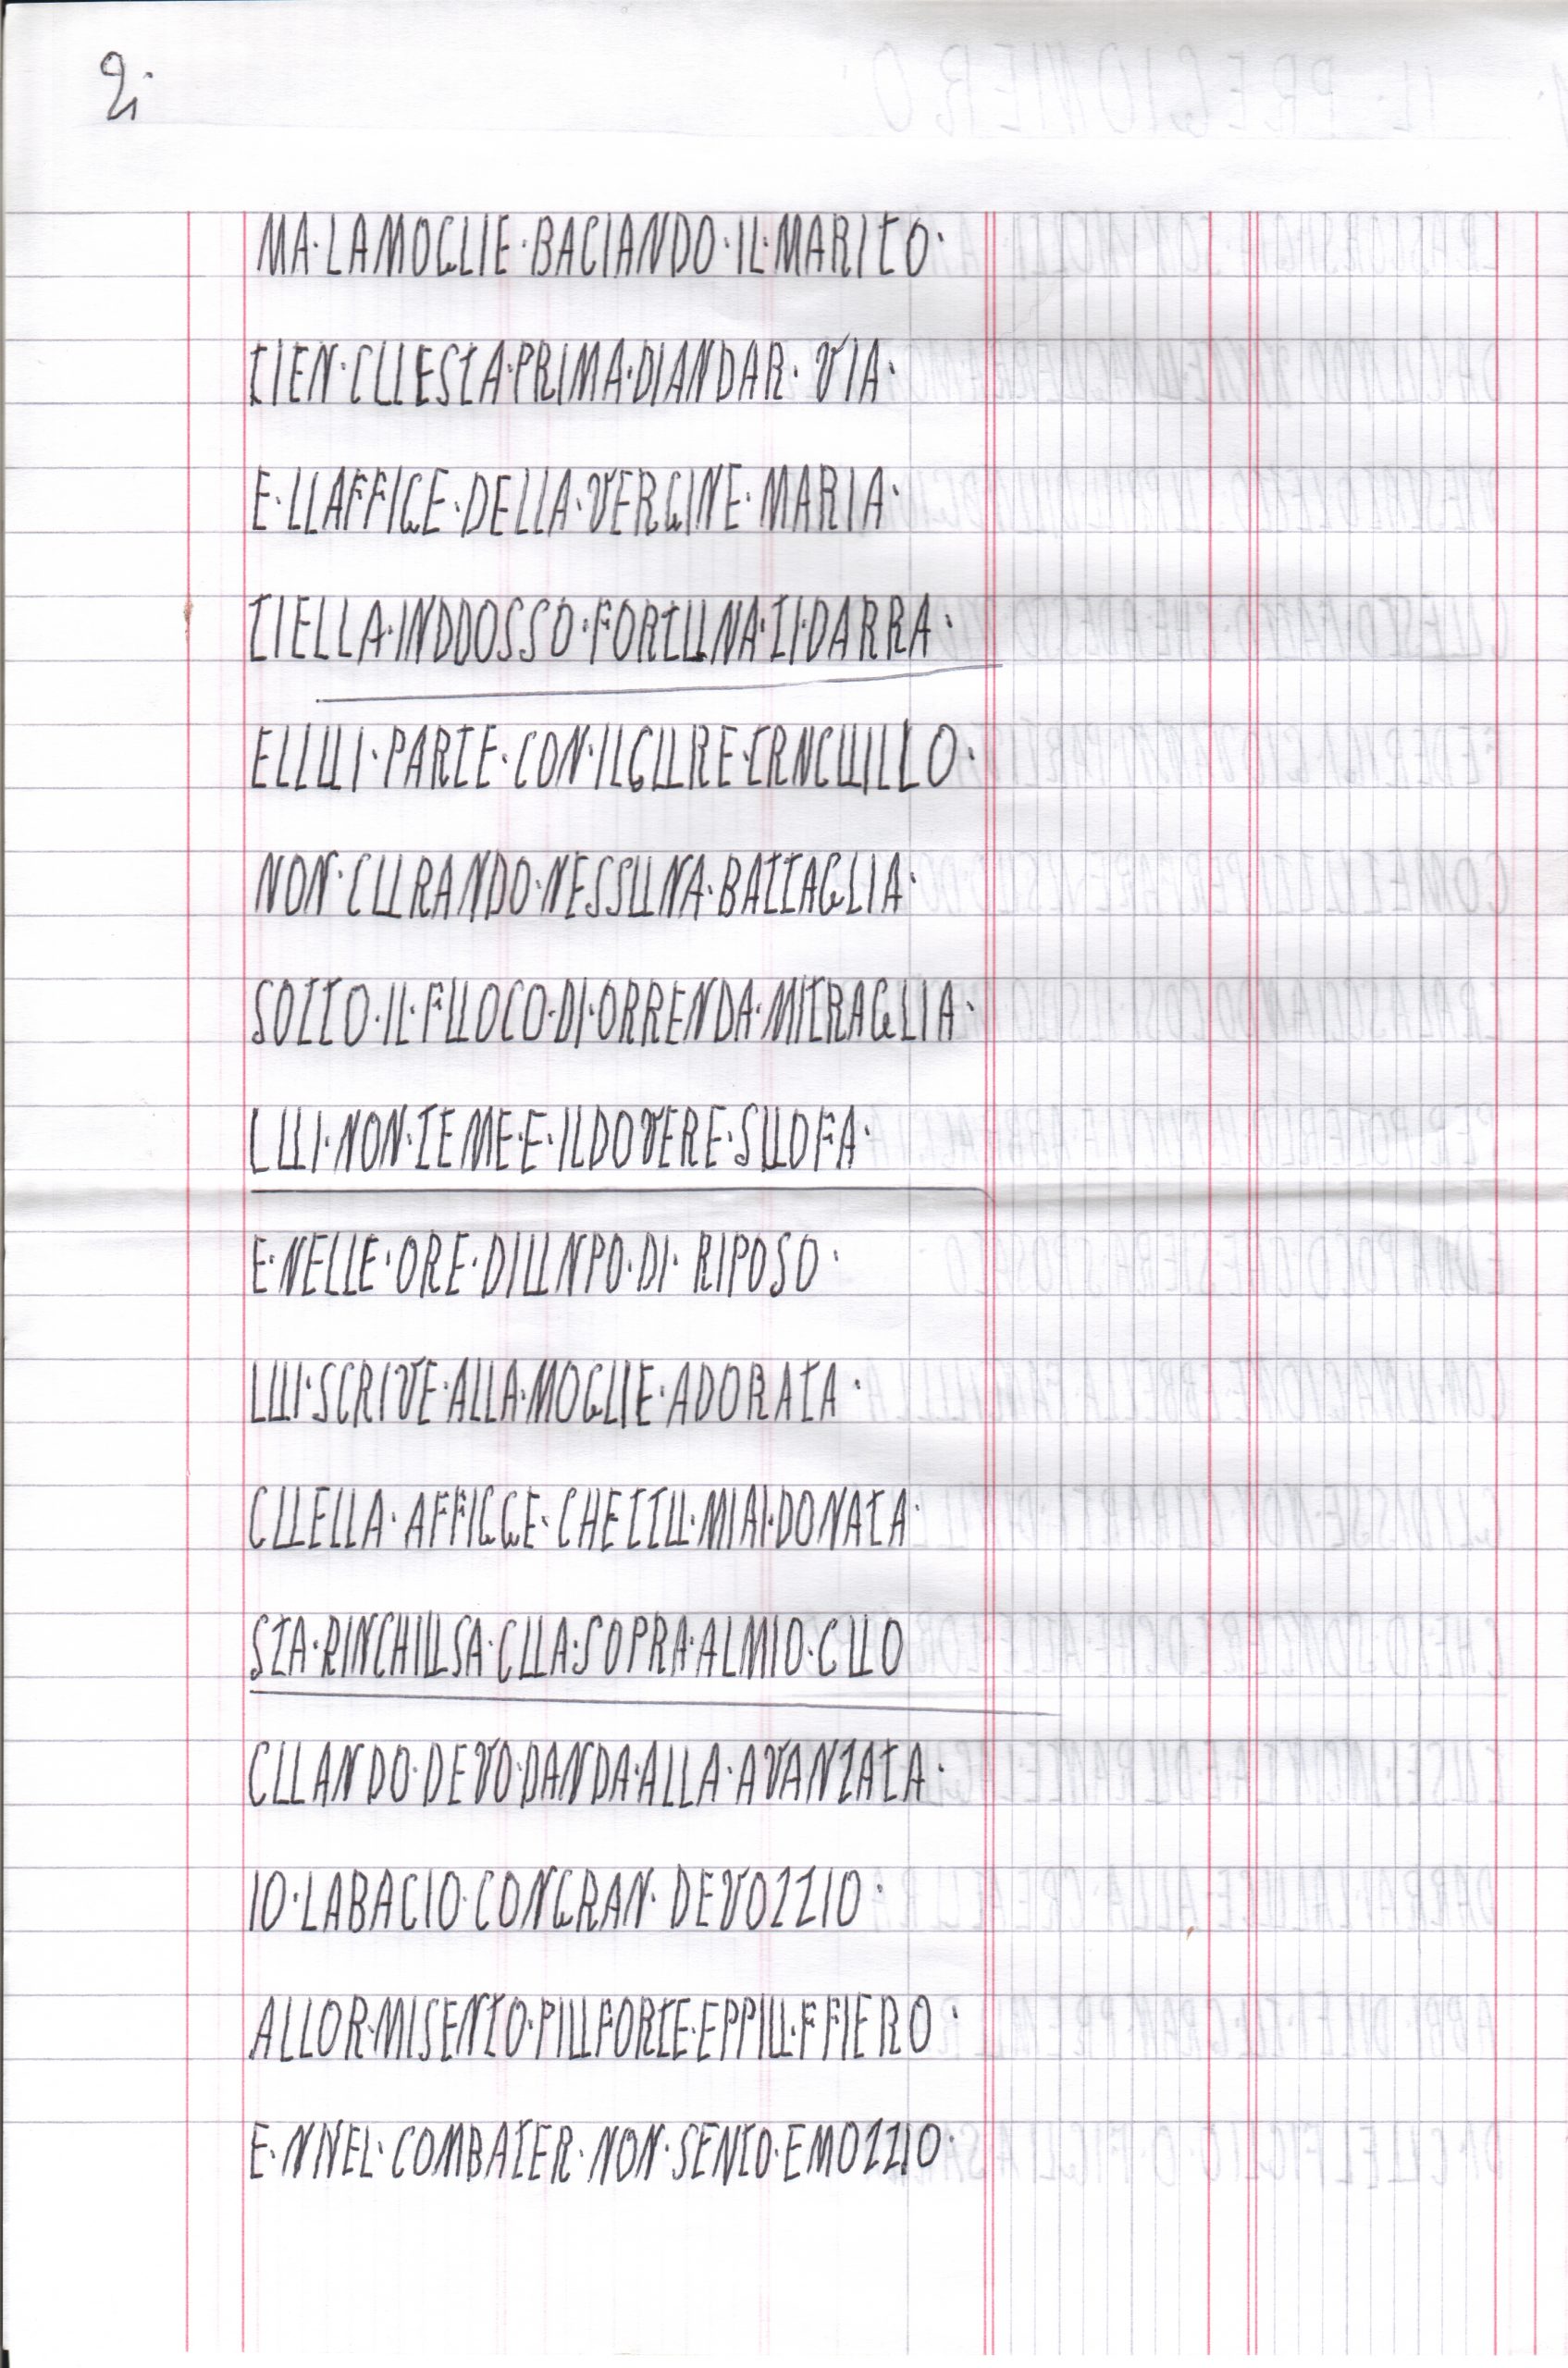 2.
MA·LAMOGLIE·BACIANDO·IL·MARITO·
TIEN·CUESTA·PRIMA·DIANDAR·VIA·
E·LLAFFIGE·DELLA·VERGINE·MARIA·
TIELLA·INDDOSSO·FORTUNA·TI·DARRA·
ELLUI·PARTE·CON·ILCURE·TRNCUILLO·
NON·CURANDO·NESSUNA·BATTAGLIA·
SOTTO·IL·FUOCO·DI·ORRENDA·MITRAGLIA·
LUI·NON·TEME·E·ILDOVERE·SUOFA·
E·NELLE·ORE·DIUNPO·DI·RIPOSO·
LUI·SCRIVE·ALLA·MOGLIE·ADORATA·
CUELLA·AFFIGGE·CHETTU·MIAI·DONATA·
STA·RINCHIUSA·CUA·SOPRA·ALMIO·CUO
CUANDO·DEVO·DANDA·ALLA·AVANZATA·
IO·LABACIO·CONGRAN·DEVOZZIO·
ALLOR·MISENTO·PIUFORTE·EPPIU·FFIERO·
E·NNEL·COMBATER·NON·SENTO·EMOZZIO·